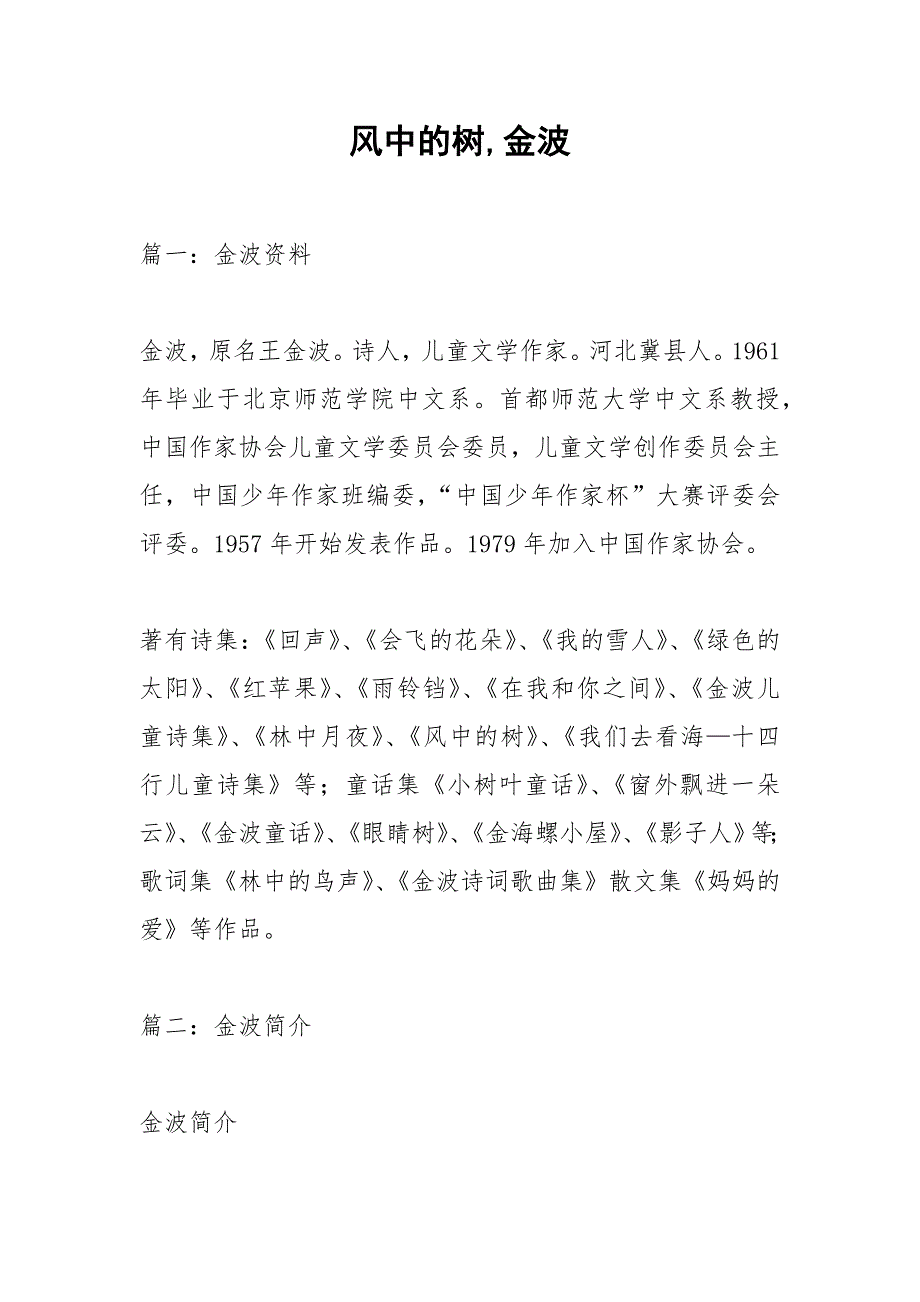 风中的树,金波
篇一：金波资料
金波，原名王金波。诗人，儿童文学作家。河北冀县人。1961
年毕业于北京师范学院中文系。首都师范大学中文系教授，
中国作家协会儿童文学委员会委员，儿童文学创作委员会主
任，中国少年作家班编委，“中国少年作家杯”大赛评委会
评委。1957 年开始发表作品。1979 年加入中国作家协会。
著有诗集：《回声》、《会飞的花朵》、《我的雪人》、《绿色的
太阳》、《红苹果》、《雨铃铛》、《在我和你之间》、《金波儿
童诗集》、《林中月夜》、《风中的树》、《我们去看海—十四
行儿童诗集》等；童话集《小树叶童话》、《窗外飘进一朵
云》、《金波童话》、《眼睛树》、《金海螺小屋》、《影子人》等；
歌词集《林中的鸟声》、《金波诗词歌曲集》散文集《妈妈的
爱》等作品。
篇二：金波简介
金波简介